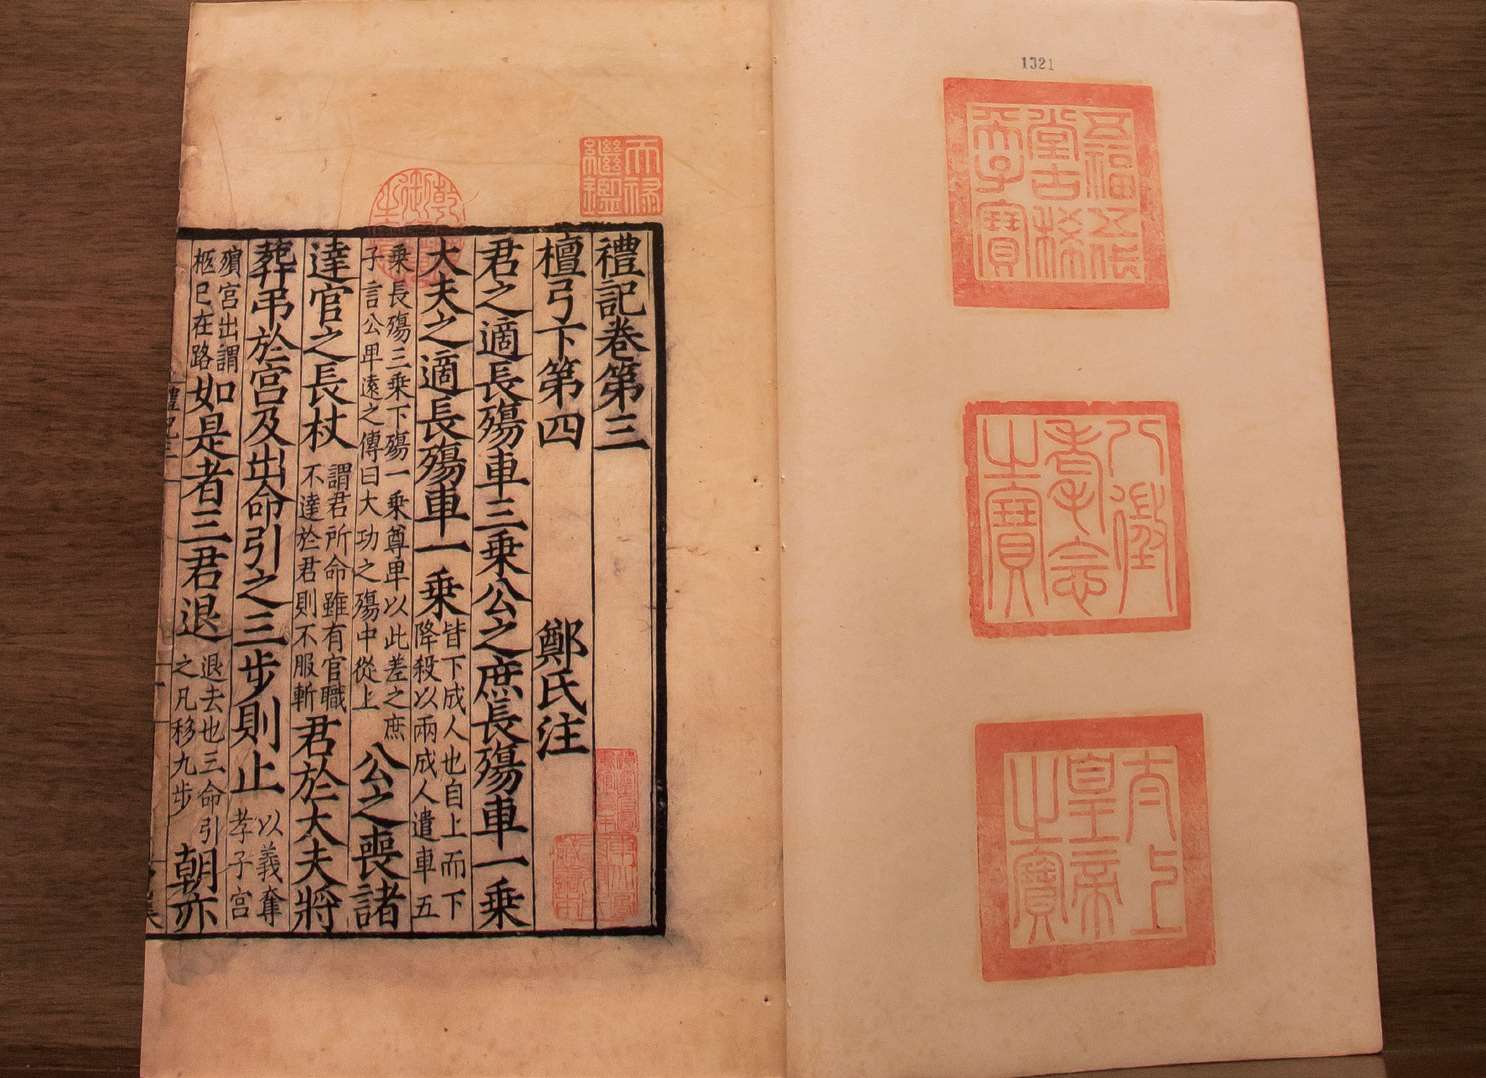 1321
五福五代
堂古稀
天子寶
八徵
耄念
之寶
太上
皇帝
之寶
天祿
繼鑑
乾隆
御覽
之寶
禮記卷第三
檀弓下第四 鄭氏注
君之適長殤車三乘公之庶長殤車一乘
大夫之適長殤車一乘 皆下成人也自上而下
降殺以兩成人遣車五
乘長殤三乘下殤一乘尊卑以此差之庶
子言公卑遠之傳曰大功之殤中從上 公之喪諸
達官之長杖 謂君所命雖有官職
不達於君則不服斬 君於大夫將
葬弔於宮及出命引之三步則止 以義奪
孝子宮
殯宮出謂
柩已在路 如是者三君退 退去也三命引
之凡移九步 朝亦
禮記三